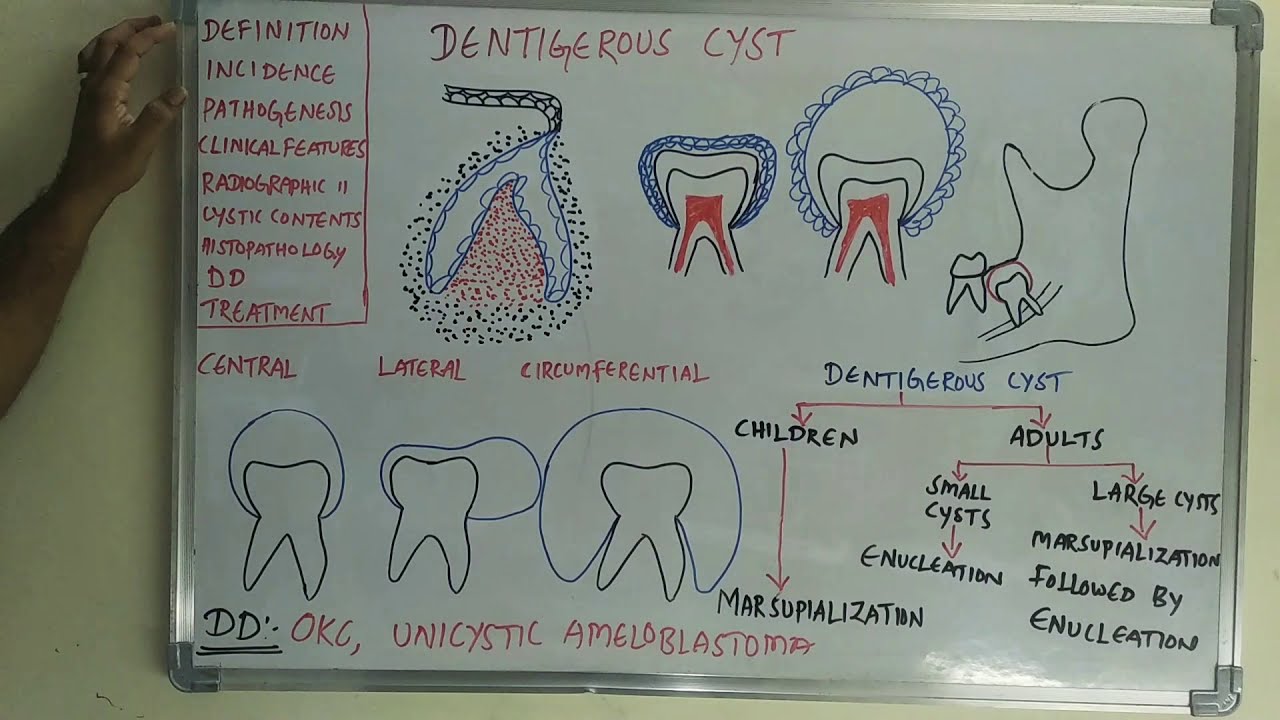 DEFINITION
INCIDENCE
PATHOGENESIS
CLINICAL FEATURES
RADIOGRAPHIC 11
CYSTIC CONTENTS
HISTOPATHOLOGY
DD
TREATMENT
DENTIGEROUS CYST
CENTRAL
LATERAL
CIRCUMFERENTIAL
DENTIGEROUS CYST
CHILDREN
ADULTS
SMALL
CYSTS
LARGE CYSTS
ENUCLEATION
MARSUPIALIZATION
FOLLOWED BY
ENUCLEATION
MARSUPIALIZATION
DD:- OKC, UNICYSTIC AMELOBLASTOMA